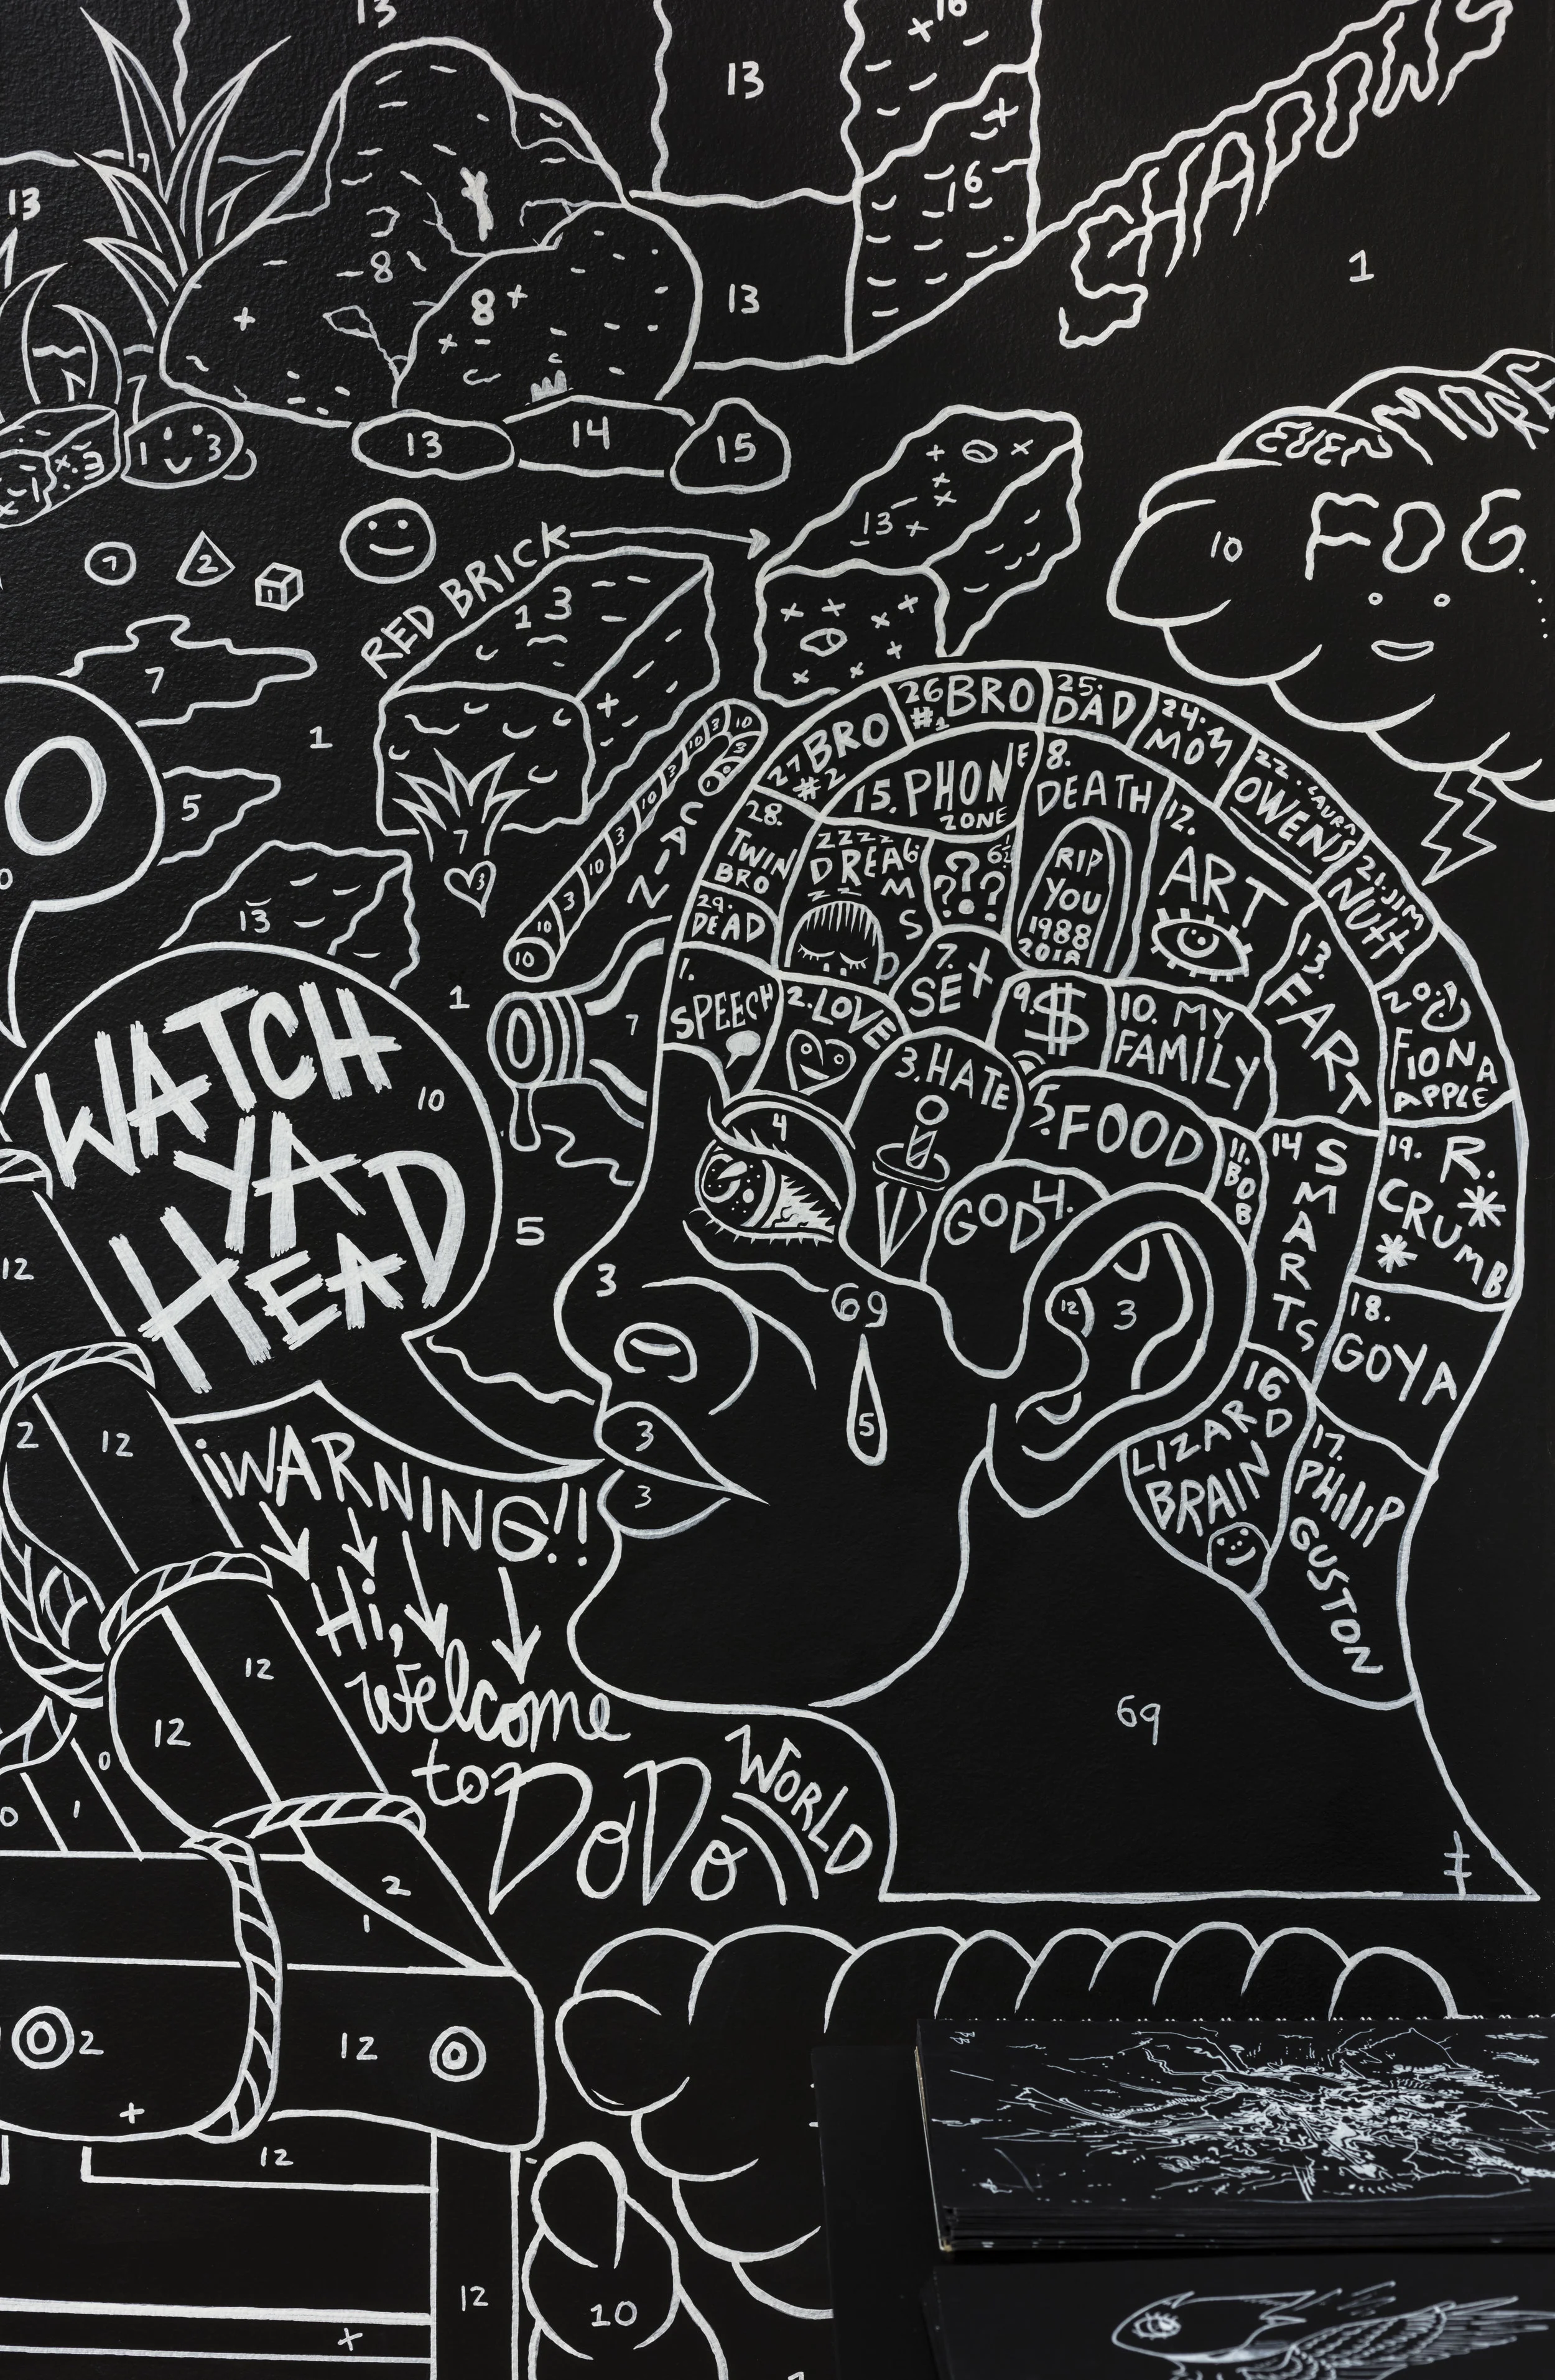 13
16
13
SHADOWS
13
16
8
8
13
1
13
14
15
13
EVEN MORE
FOG
10
RED BRICK
13
13
7
2
1
7
1
5
7
3
13
CAIN
10
3
10
3
10
3
10
3
10
10
1
7
5
WATCH
YA
HEAD
10
27 BRO #2
26 BRO #1
25. DAD
24. MOM
22. LAURA OWENS
21. JIM NUTT
20. FIONA APPLE
19. R. CRUMB
18. GOYA
17. PHILIP GUSTON
16 LIZARD BRAIN
28. TWIN BRO
29. DEAD
15. PHONE ZONE
8. DEATH
RIP
YOU
1988
2018
12. ART
13. FART
14 SMARTS
ZZZZ
DREAMS 6.
ZZ
6½
???
1. SPEECH
2. LOVE
7. SEX
9. $
10. MY FAMILY
3. HATE
5. FOOD
11. BOB
GOD 4.
4
3
69
5
12
3
3
3
69
12
2
12
¡WARNING!!
Hi,
Welcome
to DODO
WORLD
12
12
0
0
1
2
1
2
12
12
12
10